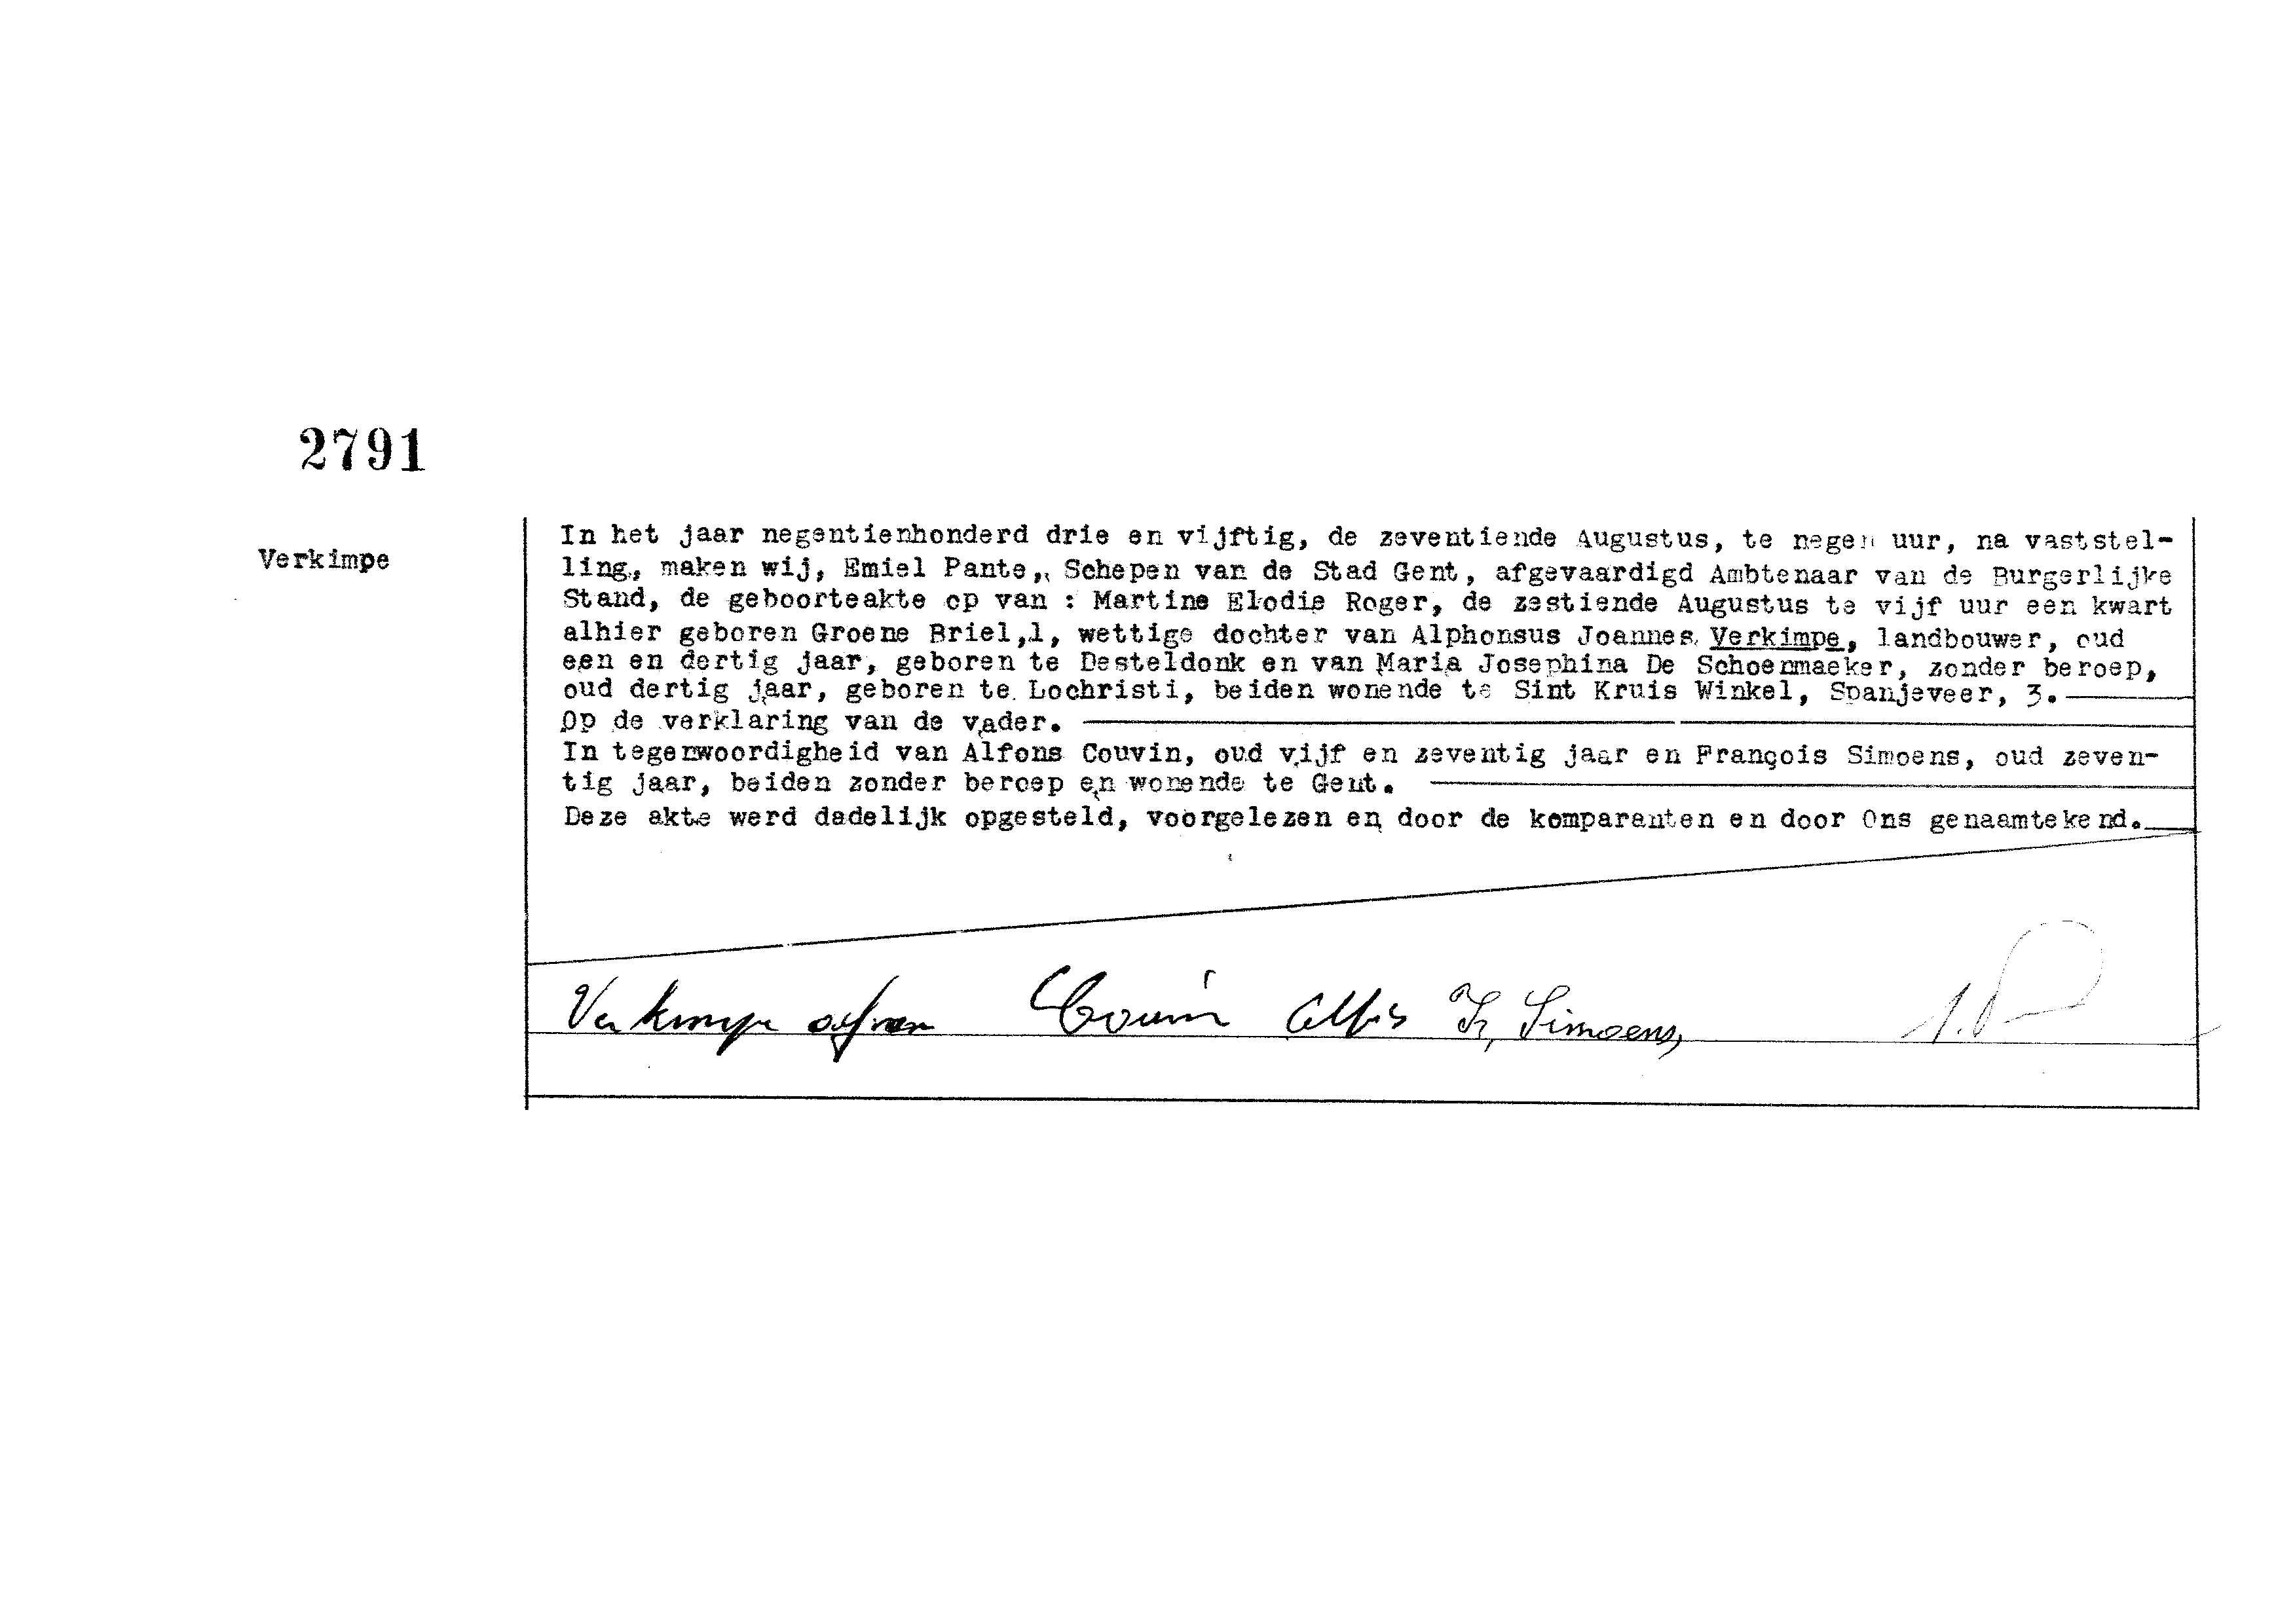 2791
Verkimpe
In het jaar negentienhonderd drie en vijftig, de zeventiende Augustus, te negen uur, na vaststel-
ling, maken wij, Emiel Pante, Schepen van de Stad Gent, afgevaardigd Ambtenaar van de Burgerlijke
Stand, de geboorteakte op van : Martine Elodie Roger, de zestiende Augustus te vijf uur een kwart
alhier geboren Groene Briel,1, wettige dochter van Alphonsus Joannes Verkimpe, landbouwer, oud
een en dertig jaar, geboren te Desteldonk en van Maria Josephina De Schoenmaeker, zonder beroep,
oud dertig jaar, geboren te Lochristi, beiden wonende te Sint Kruis Winkel, Spanjeveer, 3.
Op de verklaring van de vader.
In tegenwoordigheid van Alfons Couvin, oud vijf en zeventig jaar en François Simoens, oud zeven-
tig jaar, beiden zonder beroep en wonende te Gent.
Deze akte werd dadelijk opgesteld, voorgelezen en door de komparanten en door Ons genaamtekend.
Verkimpe Couvin Fr, Simoens,